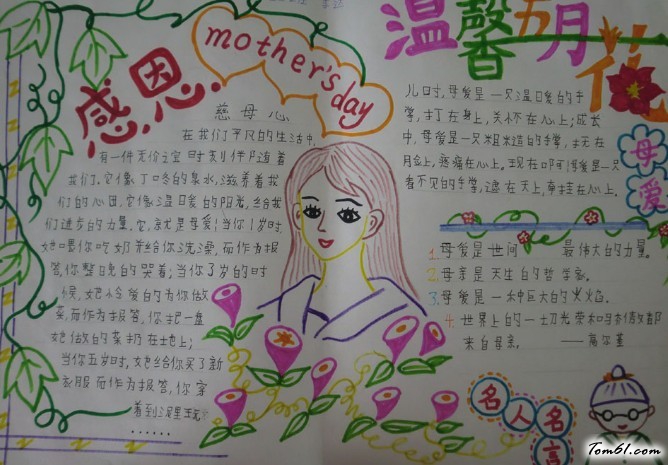 感恩
mother's
day
慈母心
在我们平凡的生活中,
有一件无价之宝时刻伴随着
我们,它像丁冬的泉水,滋养着我
们的心田,它像温暖的阳光,给我
们进步的力量,它,就是母爱!当你1岁时,
她喂你吃奶并给你洗澡,而作为报
答,你整晚的哭着;当你3岁的时
候,她怜爱的为你做
菜,而作为报答,你把一盘
她做的菜扔在地上;
当你五岁时,她给你买了新
衣服而作为报答,你穿
着到泥里玩
......
温馨五月花
儿时,母爱是一只温暖的手
掌,打在身上,关怀在心上;成长
中,母爱是一只粗糙的手掌,抚在
脸上,疼痛在心上。现在
看不见的手掌,远在天上,牵挂在心上。
母爱
1. 母爱是世间 最伟大的力量。
2. 母亲是天生的哲学家。
3. 母爱是一种巨大的火焰。
4. 世界上的一切光荣和骄傲都
来自母亲。 ——高尔基
名人名言
Tom61.com